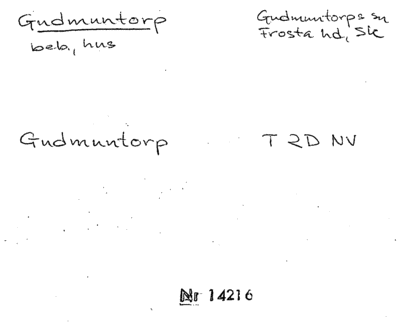 Gudmuntorp
beb., hus
Gudmuntorps sn
Frosta hd, Sk
Gudmuntorp
T 2D NV
Nr 14216